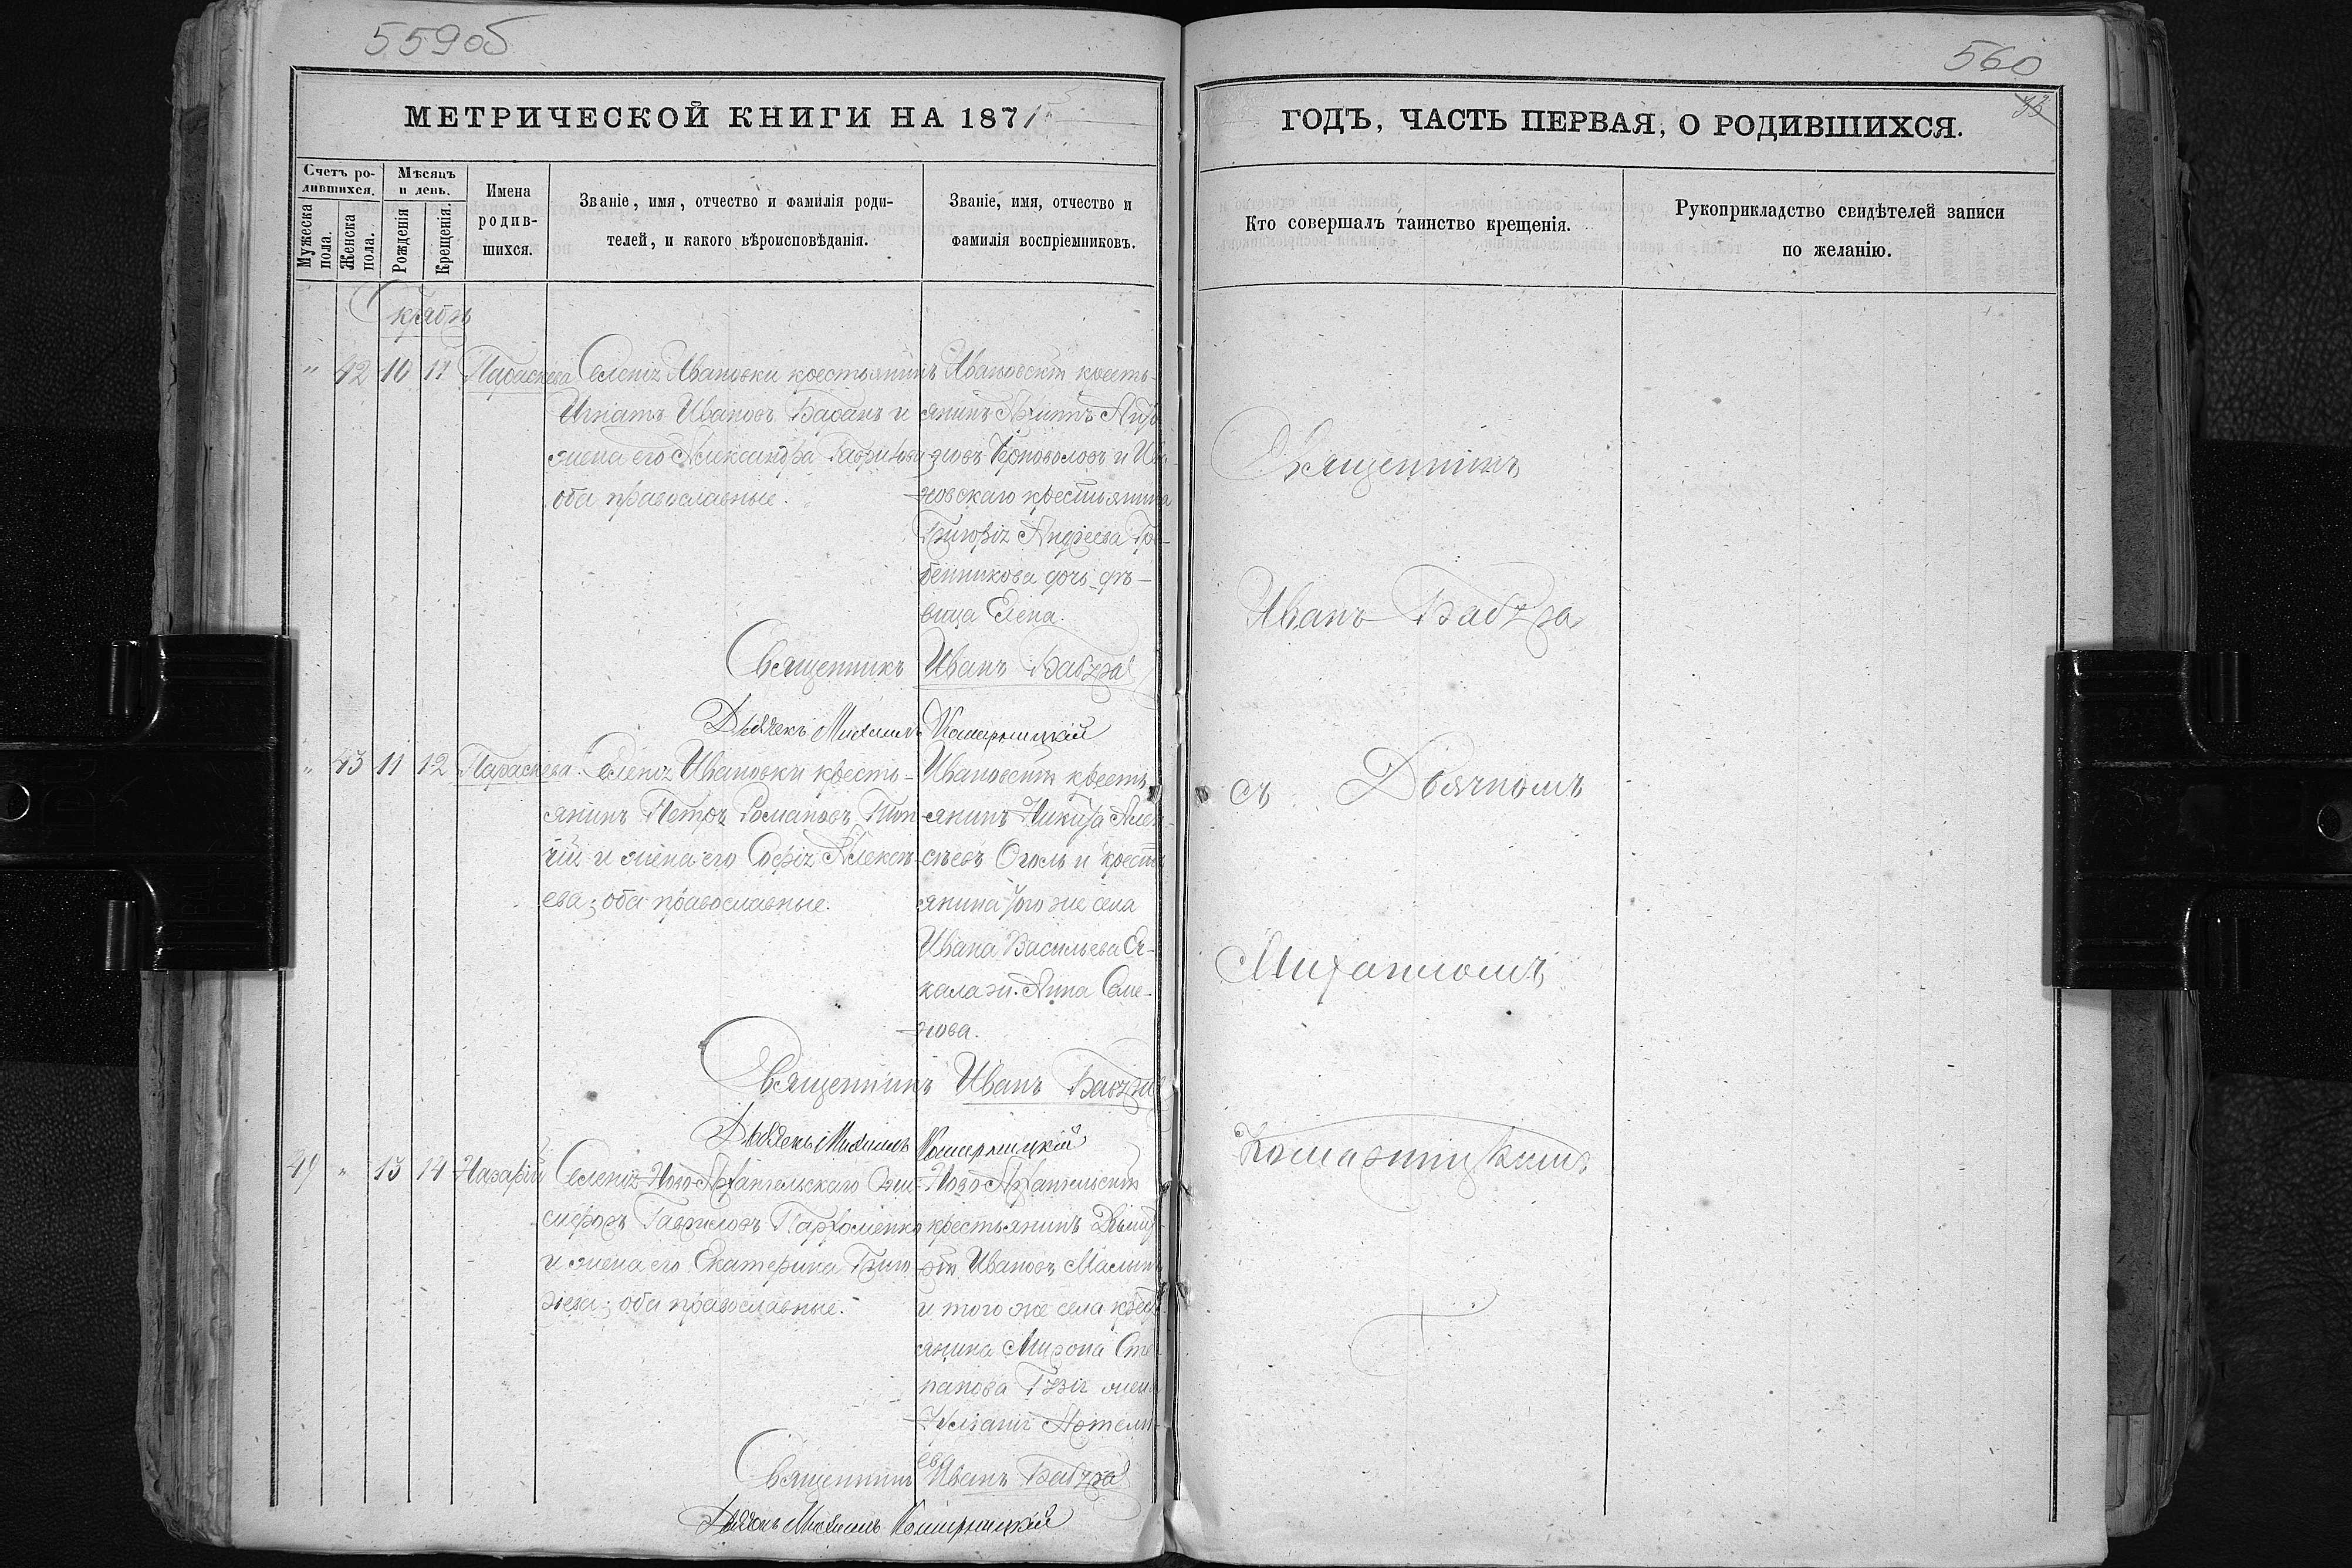 559об
МЕТРИЧЕСКОЙ КНИГИ НА 1871
Счетъ родившихся.
Мужеска пола.
Женска пола.
Мѣсяцъ и день.
Рожденія
Крещенія.
Имена родившихся.
Званіе, имя, отчество и фамилія роди-
телей, и какого вѣроисповѣданія.
Званіе, имя, отчество и
фамилія воспріемниковъ.
Октябрь
" 42 10 11 Параскева
Селенія Ивановки крестьянинъ
Игнатъ Ивановъ Бабакъ и
жена его Александра Гаврилова
оба православные.
Ивановскій кресть-
янинъ
и Ива-
новскаго крестьянина
Григорія Андреева Гре-
бенникова дочь дѣ-
вица Елена.
Священникъ Иванъ Бабура
Дьячекъ Михаилъ Комарницкій
" 43 11 12 Параскева
Селенія Ивановки кресть-
янинъ Петръ Романовъ
чій и жена его Софія Алексѣ-
ева; оба православные.
Ивановскій кресть-
янинъ Никита Алек-
сѣевъ Оголь и кресть-
янина того же села
Ивана Васильева
кала ж. Анна Семе-
нова.
Священникъ Иванъ Бабура
Дьячекъ Михаилъ Комарницкій
49 " 13 14 Назарій
Селенія Ново-Архангельскаго Они-
сифоръ Гавриловъ Пархоменко
и жена его Екатерина Григо-
рьева; оба православные.
Ново-Архангельскій
крестьянинъ Димит-
рій Ивановъ
и того же села крест-
янина Мирона Сте-
панова жена
Іуліанія Артемі-
ева
Священникъ Иванъ Бабура
Дьячекъ Михаилъ Комарницкій
560
33
ГОДЪ, ЧАСТЬ ПЕРВАЯ, О РОДИВШИХСЯ.
Кто совершалъ таинство крещенія.
Рукоприкладство свидѣтелей записи
по желанію.
Священникъ
Иванъ Бабура
съ Дьячкомъ
Михаиломъ
Комарницкимъ